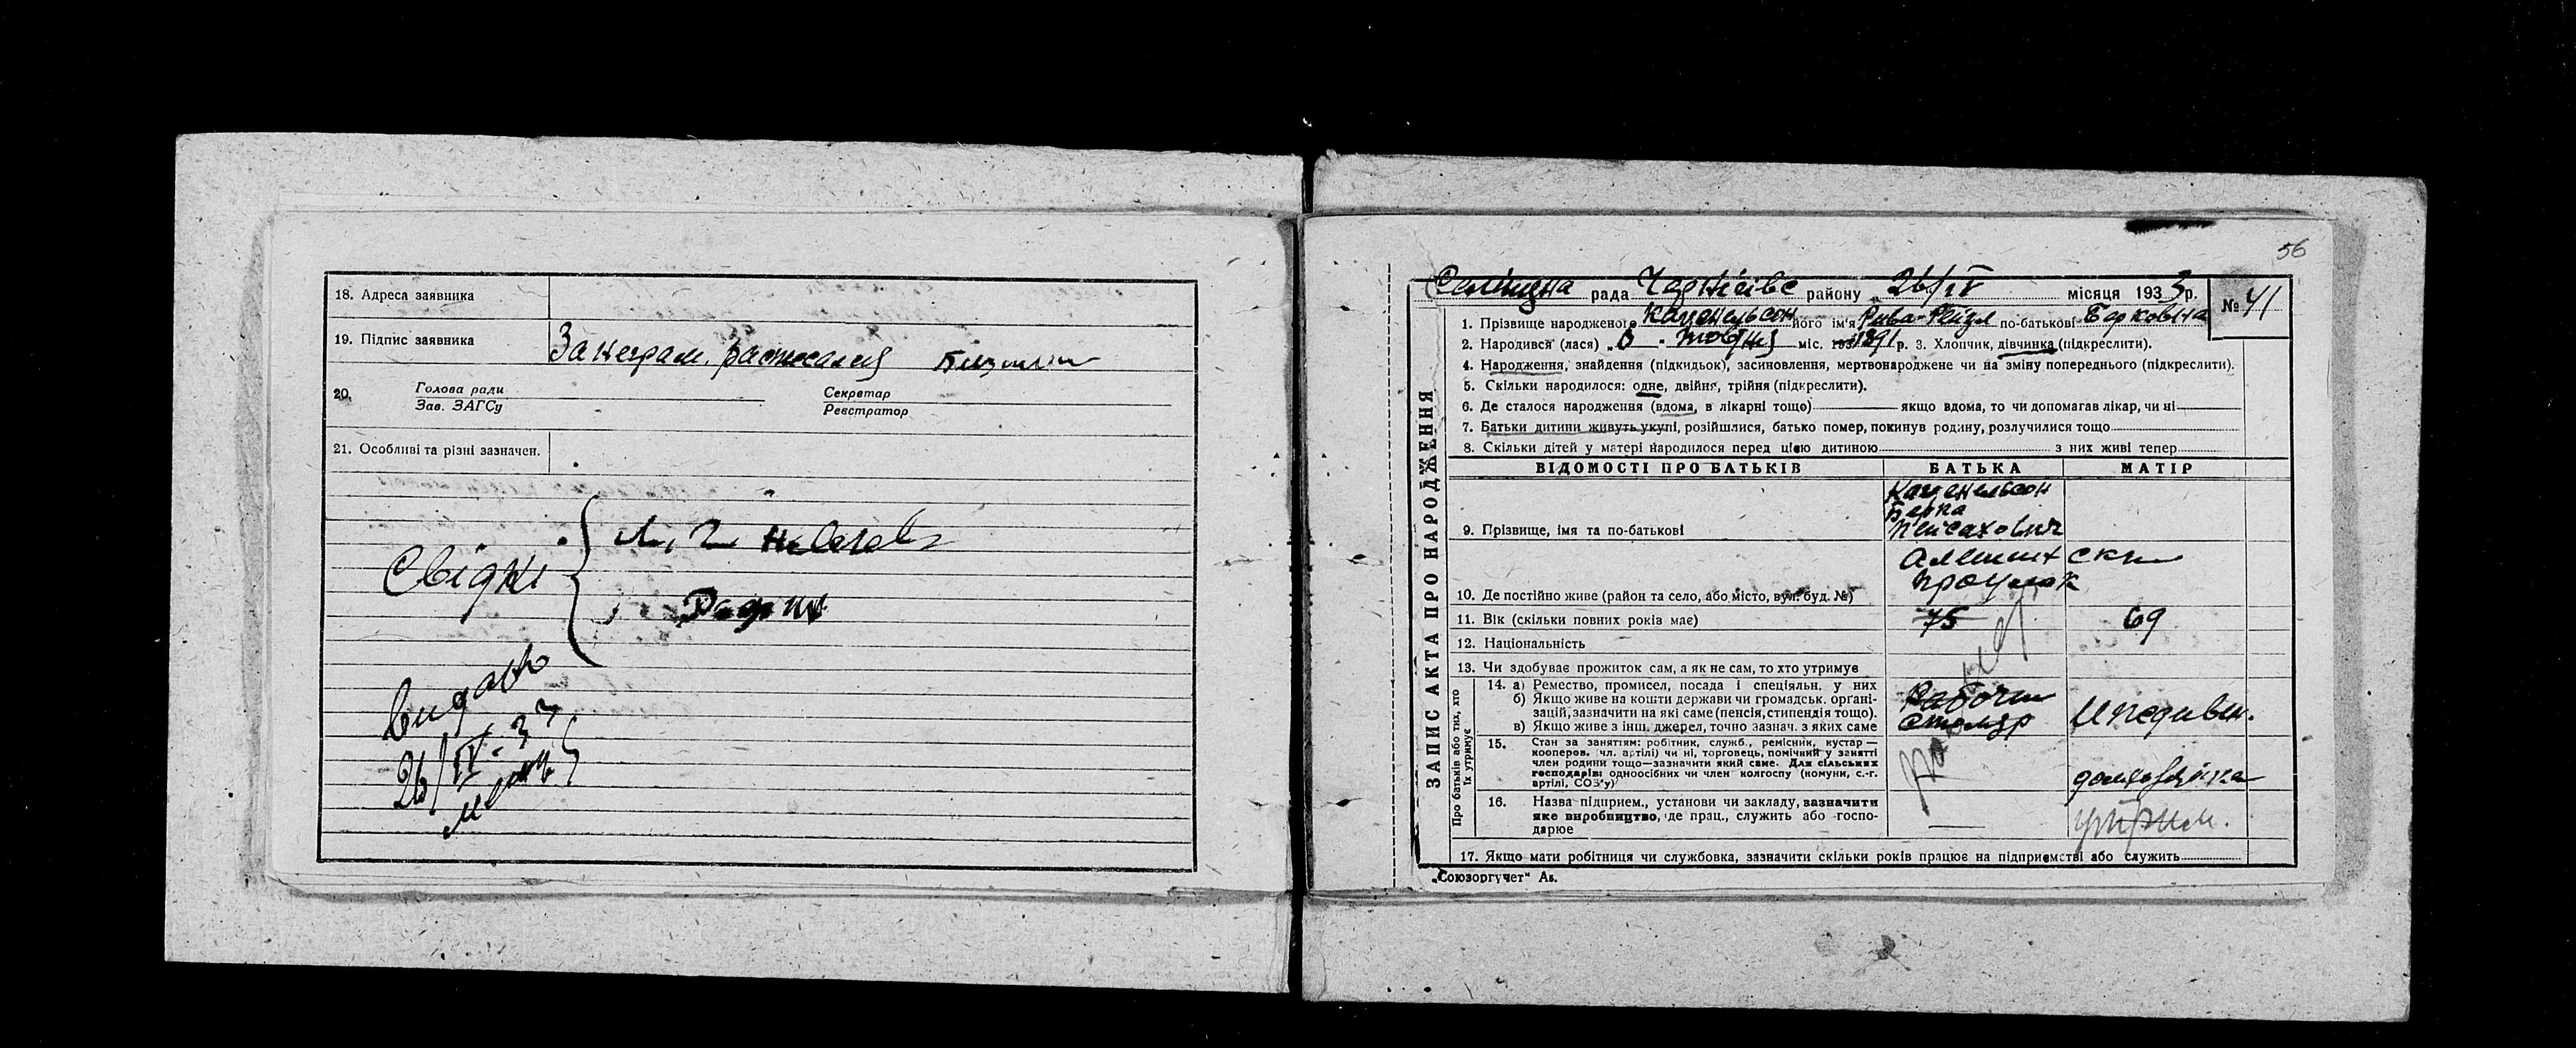 18. Адреса заявника
19. Підпис заявника
За неграм. расписался
20. Голова ради
Зав. ЗАГСу
Секретар
Реєстратор
21. Особливі та різні зазначен.
Свідкі
Видано
26/IV-33
56
рада району 26/IV місяця 1933 р.
№ 41
1. Прізвище народженого Каценельсон його ім'я Рива-Рейзл по-батькові Берковна
2. Народився (лася) „ міс. 1891 р. 3. Хлопчик, дівчинка (підкреслити).
4. Народження, знайдення (підкидьок), засиновлення, мертвонароджене чи на зміну попереднього (підкреслити).
5. Скільки народилося: одне, двійня, трійня (підкреслити).
6. Де сталося народження (вдома, в лікарні тощо) якщо вдома, то чи допомагав лікар, чи ні
7. Батьки дитини живуть укупі, розійшлися, батько помер, покинув родину, розлучилися тощо
8. Скільки дітей у матері народилося перед цією дитиною з них живі тепер
ЗАПИС АКТА ПРО НАРОДЖЕННЯ
ВІДОМОСТІ ПРО БАТЬКІВ БАТЬКА МАТІР
Каценельсон
Берка
Пейсахович
9. Прізвище, імя та по-батькові
проулок
10. Де постійно живе (район та село, або місто, вул. буд. №)
11. Вік (скільки повних років має) 75 69
12. Національність
13. Чи здобуває прожиток сам, а як не сам, то хто утримує
Про батьків або тих, хто їх утримує
14. а) Ремество, промисел, посада і спеціяльн. у них
б) Якщо живе на кошти держави чи громадськ. органі-
зацій, зазначити на які саме (пенсія, стипендія тощо).
в) Якщо живе з інш. джерел, точно зазнач. з яких саме
Рабочий
столяр
Иждивен.
15. Стан за заняттям: робітник, служб., ремісник, кустар —
кооперов. чл. артілі) чи ні, торговець, помічний у занятті
член родини тощо—зазначити який саме. Для сільських
господарів: одноосібних чи член колгоспу (комуни, с.-г.
артілі, СОЗ'у)
домохозяйка
16. Назва підприєм., установи чи закладу, зазначити
яке виробництво, де прац., служить або госпо-
дарює
утрим.
17. Якщо мати робітниця чи службовка, зазначити скільки років працює на підприємстві або служить
„Союзоргучет“ Ав.